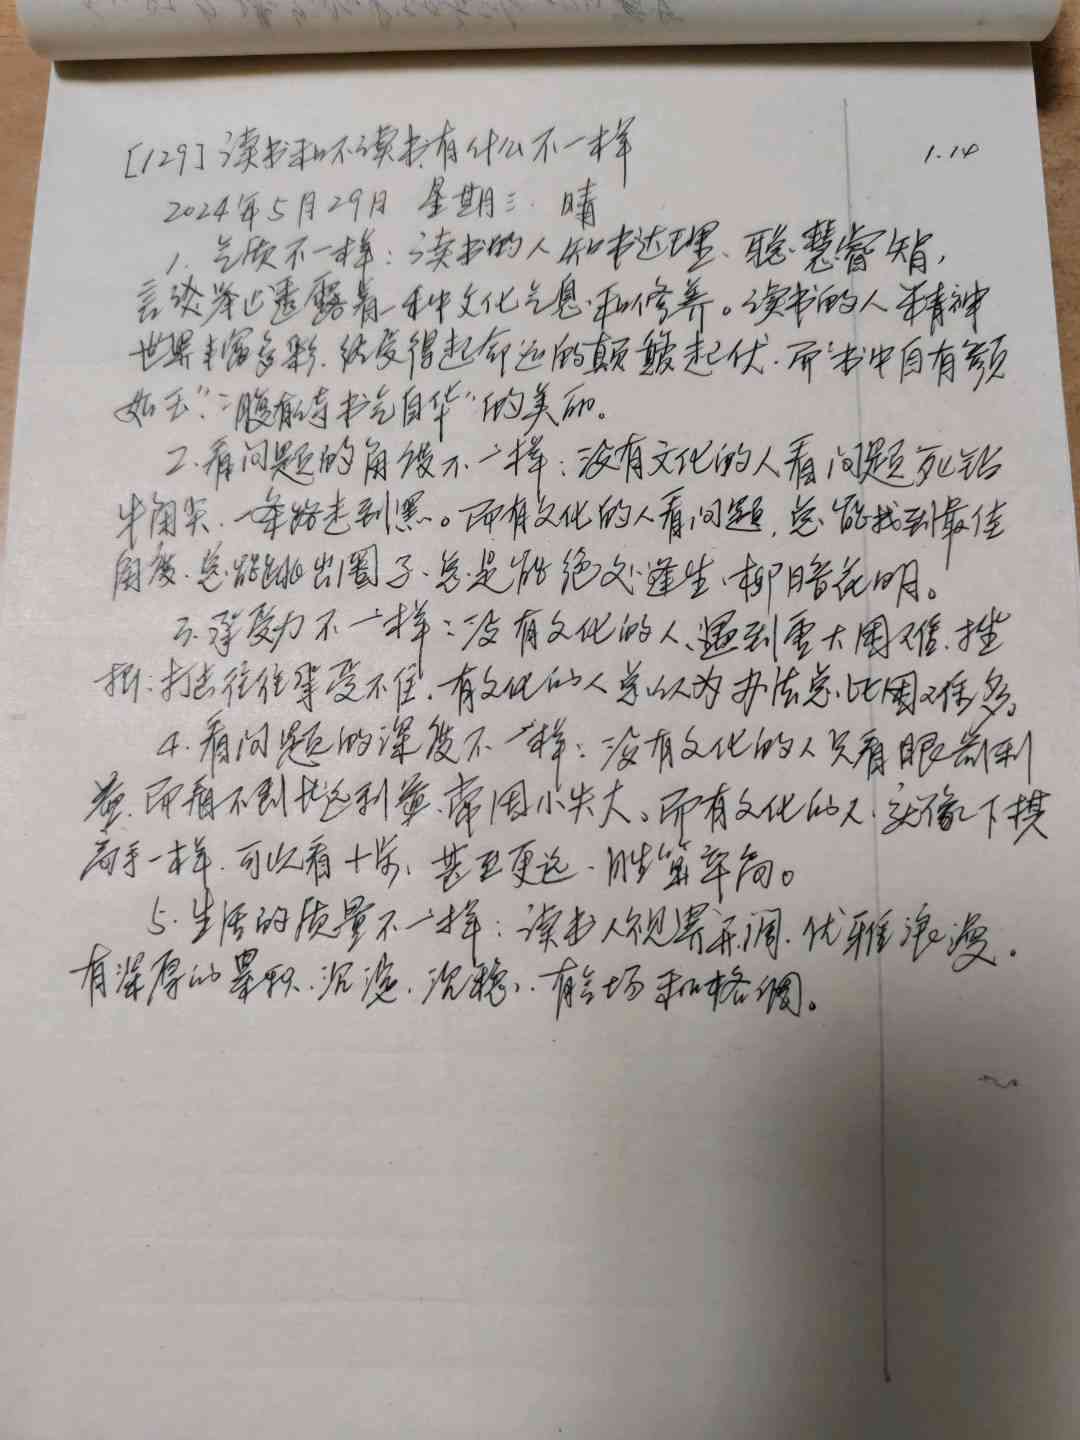 [129]读书和不读书有什么不一样 1.14
2024年5月29日 星期三 晴
1. 气质不一样：读书的人知书达理、聪慧睿智，
言谈举止透露着一种文化气息和修养。读书的人精神
世界丰富多彩，经受得起命运的颠簸起伏，而“书中自有颜
如玉”、“腹有诗书气自华”的美丽。
2. 看问题的角度不一样：没有文化的人看问题死钻
牛角尖，一条路走到黑。而有文化的人看问题，总能找到最佳
角度，总能跳出圈子，总是能绝处逢生，柳暗花明。
3. 承受力不一样：没有文化的人，遇到重大困难、挫
折、打击往往承受不住，有文化的人总以为办法总比困难多。
4. 看问题的深度不一样：没有文化的人只看眼前利
益，而看不到长远利益，常因小失大。而有文化的人，就像下棋
高手一样，可以看十步，甚至更远，胜算率高。
5. 生活的质量不一样：读书人视界开阔，优雅浪漫，
有深厚的累积、沉淀、沉稳，有气场和格调。